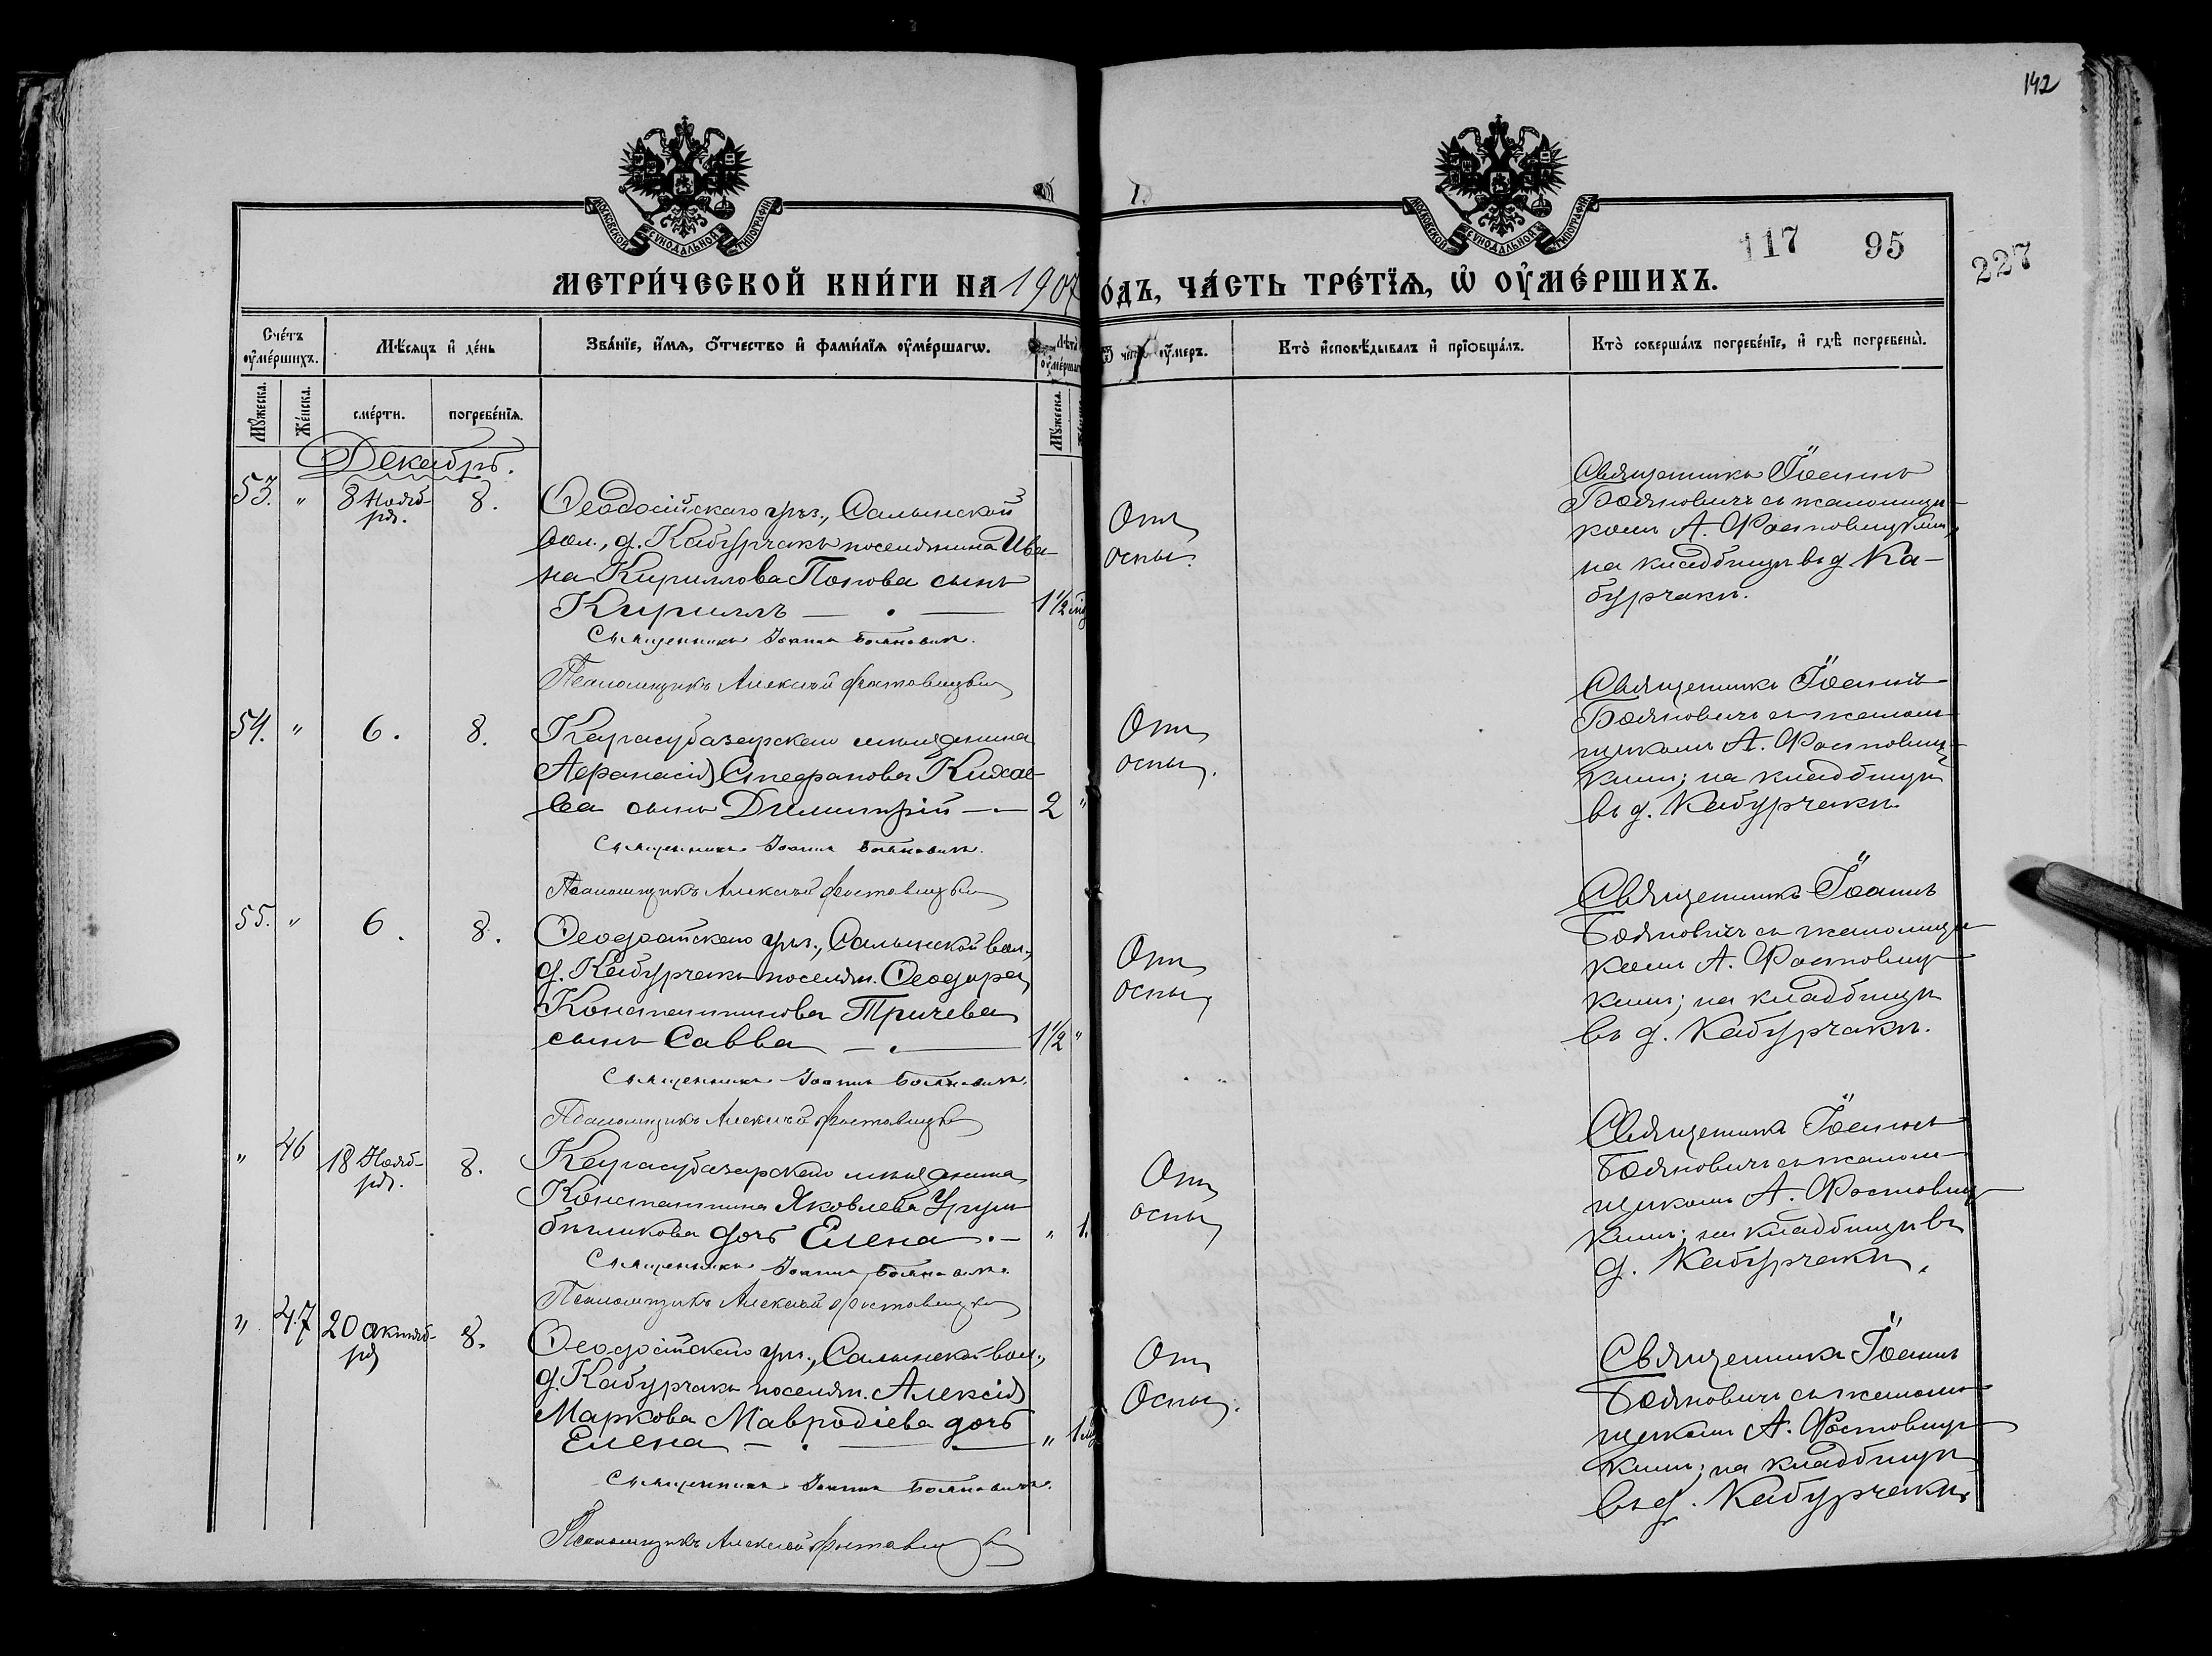 142
МОСКОВСКОЙ СѴНОДАЛЬНОЙ ТИПОГРАФІИ
МОСКОВСКОЙ СѴНОДАЛЬНОЙ ТИПОГРАФІИ
117 95 227
МЕТРИ́ЧЕСКОЙ КНИ́ГИ НА 1907
О́ДЪ, ЧА́СТЬ ТРЕ́ТЇѦ, Ѡ҆ ОУ҆МЕ́РШИХЪ.
Сче́тъ оу҆ме́ршихъ.
Мѣ́сяцъ и҆ де́нь
Зва́нїе, и҆́мѧ, ѻ҆́тчество и҆ фами́лїѧ оу҆ме́ршагѡ.
Лѣ́та оу҆ме́рша
Ѿ чегѡ̀ оу҆́меръ.
Кто̀ и҆сповѣ́дывалъ и҆ прїѡбща́лъ.
Кто̀ соверша́лъ погребе́нїе, и҆ гдѣ̀ погребены̀.
Мꙋ́жеска.
Же́нска.
сме́рти.
погребе́нїѧ.
Мꙋ́жеска.
Декабрь.
53. " 8 Нояб-
ря.
8.
Ѳеодосійскаго уѣз., Салынской
вол., д. Кабурчакъ поселянина Ива-
на Кириллова Попова сынъ
Кириллъ — . — 1 1/2
Священникъ Іоаннъ Бояновичъ.
Псаломщикъ Алексѣй Фастовицкій
Отъ
оспы.
Священникъ Іоаннъ
Бояновичъ съ псаломщи-
комъ А. Фастовицкимъ,
на кладбищѣ въ д. Ка-
бурчакъ.
54. " 6. 8.
Карасубазарскаго мѣщанина
Аѳанасія Стефанова Кихае-
ва сынъ Димитрій — 2 "
Священникъ Іоаннъ Бояновичъ.
Псаломщикъ Алексѣй Фастовицкій
Отъ
оспы.
Священникъ Іоаннъ
Бояновичъ съ псалом-
щикомъ А. Фастовиц-
кимъ; на кладбищѣ
въ д. Кабурчакъ.
55. " 6. 8.
Ѳеодосійскаго уѣз., Салынской вол.,
д. Кабурчакъ поселян. Ѳеодора
Константинова Тричева
сынъ Савва — . — 1 1/2 "
Священникъ Іоаннъ Бояновичъ.
Псаломщикъ Алексѣй Фастовицкій
Отъ
оспы
Священникъ Іоаннъ
Бояновичъ съ псаломщи-
комъ А. Фастовиц-
кимъ; на кладбищѣ
въ д. Кабурчакъ.
" 46 18 Нояб-
ря.
8.
Карасубазарскаго мѣщанина
Константина Яковлева
дочь Елена . — " 1.
Священникъ Іоаннъ Бояновичъ.
Псаломщикъ Алексѣй Фастовицкій
Отъ
оспы
Священникъ Іоаннъ
Бояновичъ съ псалом-
щикомъ А. Фастовиц-
кимъ; на кладбищѣ въ
д. Кабурчакъ.
" 47 20 октяб-
ря
8.
Ѳеодосійскаго уѣз., Салынской вол.,
д. Кабурчакъ поселян. Алексія
Маркова Мавродіева дочь
Елена — . — " 1
Священникъ Іоаннъ Бояновичъ.
Псаломщикъ Алексѣй Фастовицкій
Отъ
Оспы.
Священникъ Іоаннъ
Бояновичъ съ псалом-
щикомъ А. Фастовиц-
кимъ; на кладбищѣ
въ д. Кабурчакъ.